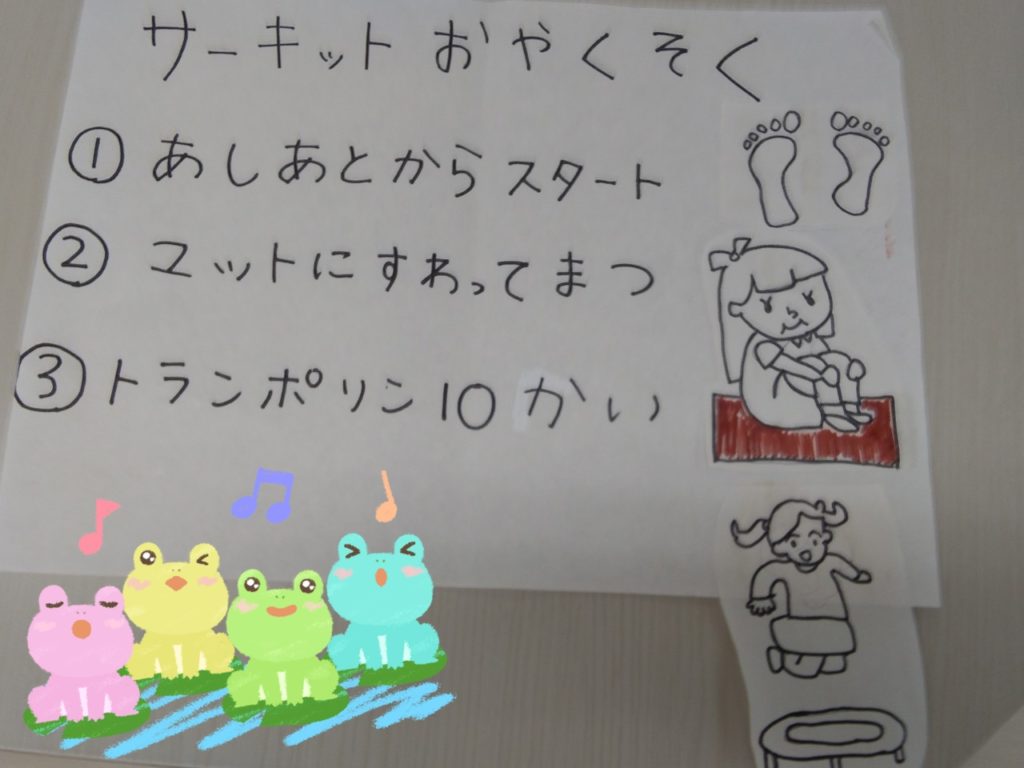 サーキット おやくそく
① あしあとから スタート
② マットに すわって まつ
③ トランポリン 10 かい